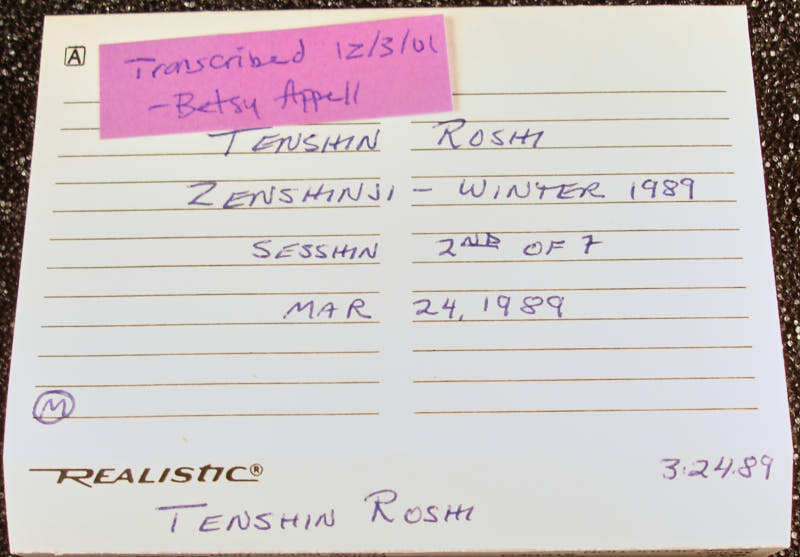 A
Transcribed 12/3/01
- Betsy Appell
TENSHIN ROSHI
ZENSHINJI - WINTER 1989
SESSHIN 2ND OF 7
MAR 24, 1989
M
REALISTIC®
3.24.89
TENSHIN ROSHI